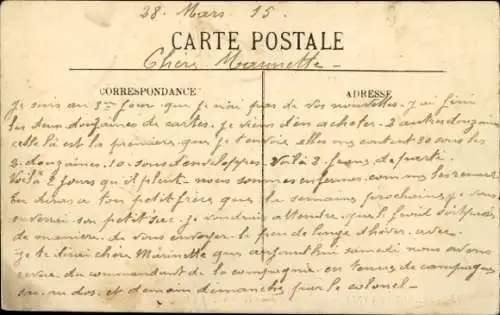 28. Mars. 15.
CARTE POSTALE
Chère Marinette –
CORRESPONDANCE
ADRESSE
Je suis au 3me jour que je n'ai pas de vos nouvelles. J'ai fini
les deux douzaines de cartes. Je viens d'en acheter 2 autres douzaines
celle là est la première que je t'envoie elles me coutent 30 sous les
2 douzaines. 10 sous d'enveloppes. Voilà 2 francs de parti.
Voilà 2 jours qu'il pleut – nous sommes enfermés comme les
tu diras a ton petit frère que la semaine prochaine je vous
enverrai son petit sac. Je voudrais attendre que le froid soit passé
de manière de vous envoyer le peu de linge d'hiver avec.
Je te dirai chère Marinette que aujourd'hui samedi nous avons
revue du commandant de la compagnie en tenue de campagne
sac au dos. et demain dimanche par le colonel –